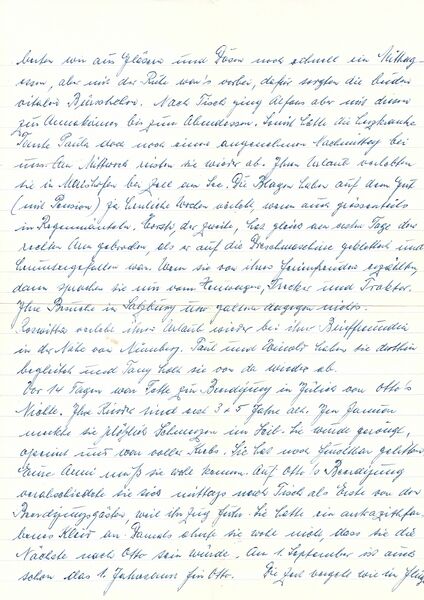 boten wir aus Gläsern und Dosen noch schnell ein Mittag-
essen, aber mit der Ruhe war's vorbei, dafür sorgten die beiden
vitalen Bürschchen. Nach Tisch ging Alfons aber mit diesen
zum bis zum Abendessen. Somit hatte die herzkranke
Tante Paula doch noch einen angenehmen Nachmittag bei
uns. Am Mittwoch reisten sie wieder ab. Ihren Urlaub verlebten
sie in Maishofen bei Zell am See. Die Blagen haben auf dem Gut
(mit Pension) ja herrliche Wochen verlebt wenn auch grösstenteils
in Regenmänteln. Horst, der zweite, hat gleich am ersten Tage den
rechten Arm gebrochen, als er auf die Dreschmaschine geklettert und
heruntergefallen war. Wenn sie von ihren Ferienfreuden erzählten
dann sprachen sie nur vom Heuwagen, Trecker und Traktor.
Ihre Besuche in Salzburg usw galten dagegen nichts.
Roswitha verlebte ihren Urlaub wieder bei ihrer Brieffreundin
in der Nähe von Nürnberg. Paul und haben sie dorthin
begleitet und Tany holte sie von da wieder ab.
Vor 14 Tagen war Fette zur Beerdigung in Jülich von Otto's
Nichte. Ihre Kinder sind erst 3 + 5 Jahre alt. Im Januar
merkte sie plötzlich Schmerzen im Leib. Sie wurde geröngt,
operiert und war voller Krebs. Sie hat unser furchtbar gelitten.
Eure Anni muß sie wohl kennen. Auf Otto's Beerdigung
verabschiedete sie sich mittags nach Tisch als Erste von den
Beerdigungsgästen weil ihr Zug fuhr. Sie hatte ein anthrazitfar-
benes Kleid an. Damals ahnte sie wohl nicht, dass sie die
Nächste nach Otto sein würde. Am 1. September ist auch
schon das 1. Jahresamt für Otto. Die Zeit vergeht wie im Flug